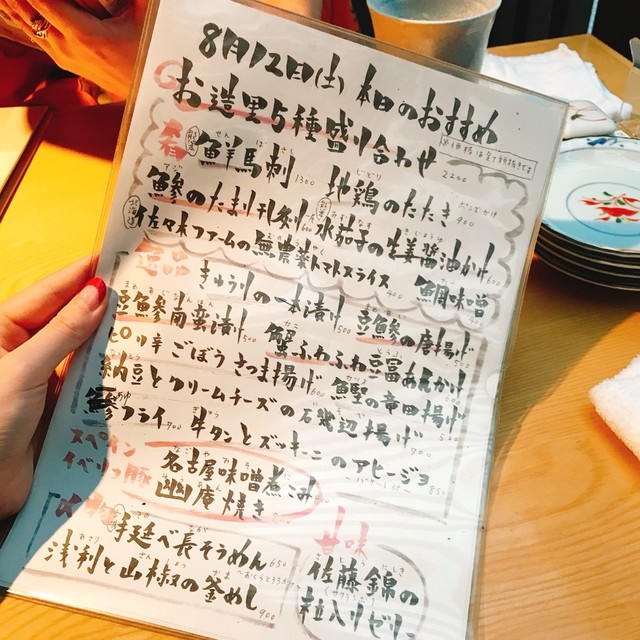 8月12日(土) 本日のおすすめ
お造里5種盛り合わせ 2200
※価格は全て税抜きです
鮮馬刺 1300 地鶏のたたき 900
鯵のたまり刊刻 水茄子の生姜醤油かけ
北海道 佐々木ファームの無農薬トマトスライス 鯛味噌 500
逸品 きゅうりの一本漬け 500 豆鯵の唐揚げ
豆鯵南蛮漬け 500 蟹ふわふわ豆富あんかけ
ピリ辛ごぼうさつま揚げ 600 鰹の竜田揚げ
納豆とクリームチーズの石磯辺揚げ
鯵フライ 900 牛タンとズッキーニのアヒージョ 850
スペイン
イベリコ豚
名古屋味噌煮こみ
幽庵焼き
〆物
手延べ長そうめん 650
浅利と山椒の釜めし 900
甘味
佐藤錦の
粒入りゼリー